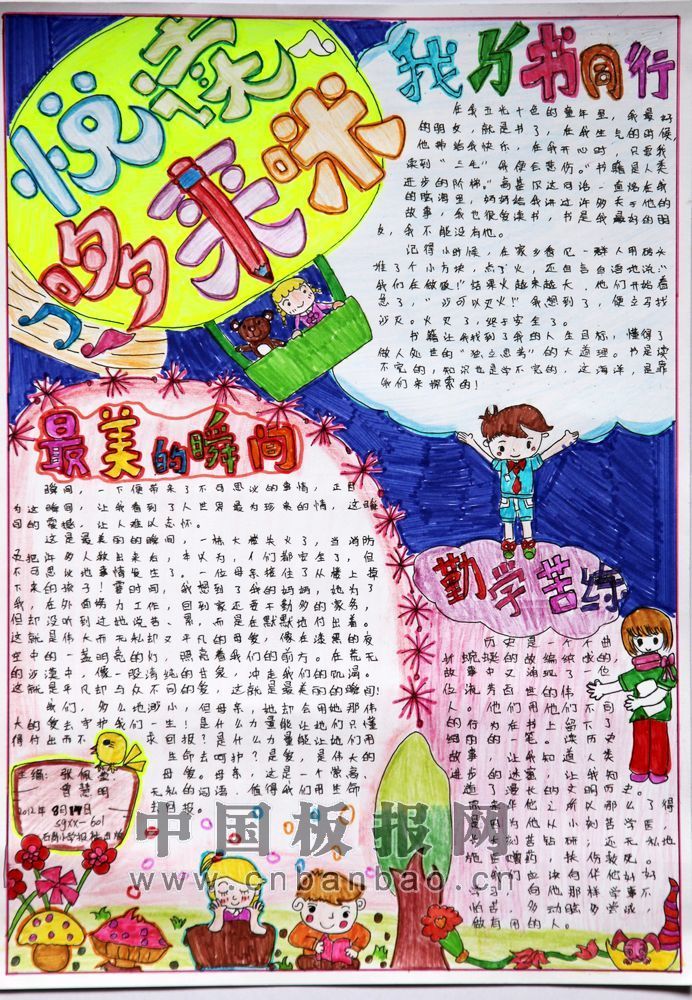 悦读
多来咪
我与书同行
在我五光十色的童年里,我最好
的朋友,就是书了,在我生气的时候,
他带给我快乐,在我开心时,只要我
来到“三毛”我便会悲伤。“书籍是人类
进步的阶梯。”高基仅这句话一直烙在我
的脑海里,妈妈给我讲过许多关于他的
故事,我也很爱读书,书是我最好的朋
友,我不能没有他。
记得小时候,在家乡看见一群人用砖头
堆了个小方块,点了火,还自言自语地说:“
我们在做饭!”结果火越来越大,他们开始着
急了,“沙可以灭火!”我想到了,便立马找
沙灭。火灭了,终于安全了。
书籍让我找到了我的人生目标,懂得了
做人处世的“独立思考”的大道理。书是读
不完的,知识也是学不完的,这海洋,是靠
我们来探索的!
最美的瞬间
瞬间,一下便带来了不可思议的事情,正因
为这瞬间,让我看到了人世界最为珍来的情,这瞬
间的震撼,让人难以忘怀。
这是最美丽的瞬间,一栋大楼失火了,当消防
员把许多人救出来后,本以为,人们都安全了,但
不可思议地事情发生了。一位母亲接住了从楼上掉
下来的孩子!霎时间,我想到了我的妈妈,她为了
我,在外面努力工作,回到家还要不勤务的家务,
但却没听到过她说苦、累,而是在默默地付出着。
这就是伟大而无私却又平凡的母爱,像在漆黑的夜
空中的一盏明亮的灯,照亮着我们的前方。在荒无
的沙漠中,像一股清纯的甘泉,冲走我们的饥渴。
这就是平凡却与众不同的爱,这就是最美丽的瞬间!
我们,多么地渺小,但母亲,她却会用她那伟
大的爱去守护我们一生!是什么力量能让她们只懂
得付出而不 求回报?是什么力量能让她们用
生命去呵护?是爱,是伟大的
母爱。母亲,这是一个崇高、
无私的词语,值得我们用生命
去回报。
主编:张佩
曾慧明
2012年8月14日
S9xx-601
勤学苦练
历史是一个个曲
故事中又涌现了
位流芳百世的伟
人。他们用他们不同
的行为在书上留下了
的一笔。读历史
故事,让我知道人类
进步的迷雾,让我知
道了漫长的文明历史。
他之所以那么了得
他从小刻苦学医,
刻苦钻研,还无私地
医药,扶伤救死。
们也应该向伴他好好
向他那样学事不
怕苦,多动脑多尝试,
做有用的人。
中国板报网
www.cnbanbao.cn